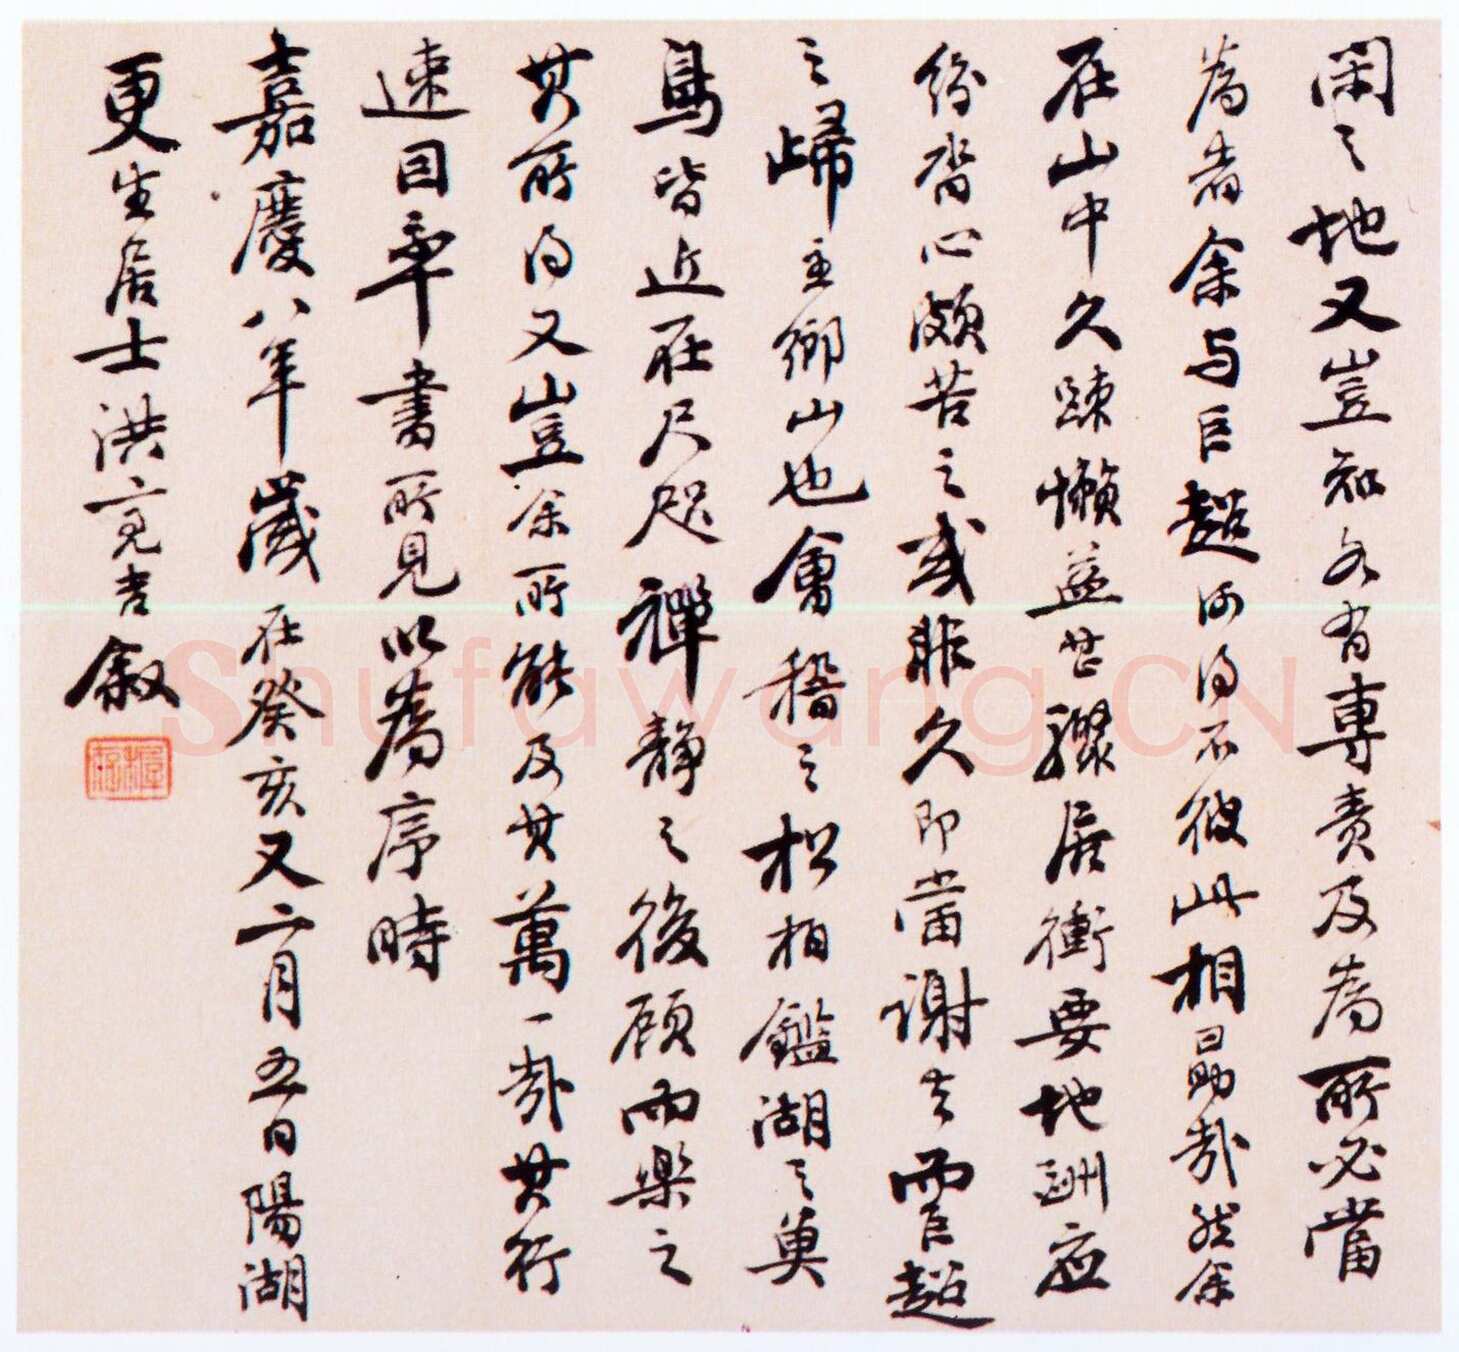 閑之地又豈知各有專責及為所必當
為者余与巨超何得不彼此相勗哉然余
在山中久踈懶益甚驟居衝要地酬應
紛沓心頗苦之或非久即當謝去而巨超
之歸主鄉山也會稽之松柏鑑湖之
鳥皆近在尺咫禪靜之後顧而樂之
其所得又豈余所能及其萬一哉其行
速因率書所見以為序時
嘉慶八年歲在癸亥又二月五日陽湖
更生居士洪亮吉敘
Shufawang.CN